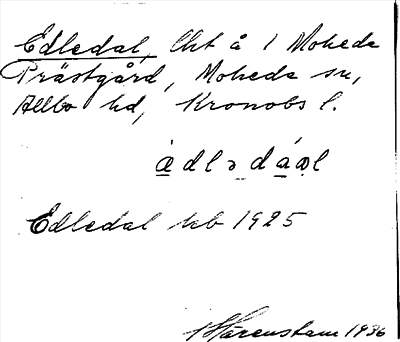 Edledal, lht å 1 Moheda
Prästgård, Moheda sn,
Allbo hd, Kronobs l.
ædləda᷄l
Edledal hb 1925
Härenstam 1936